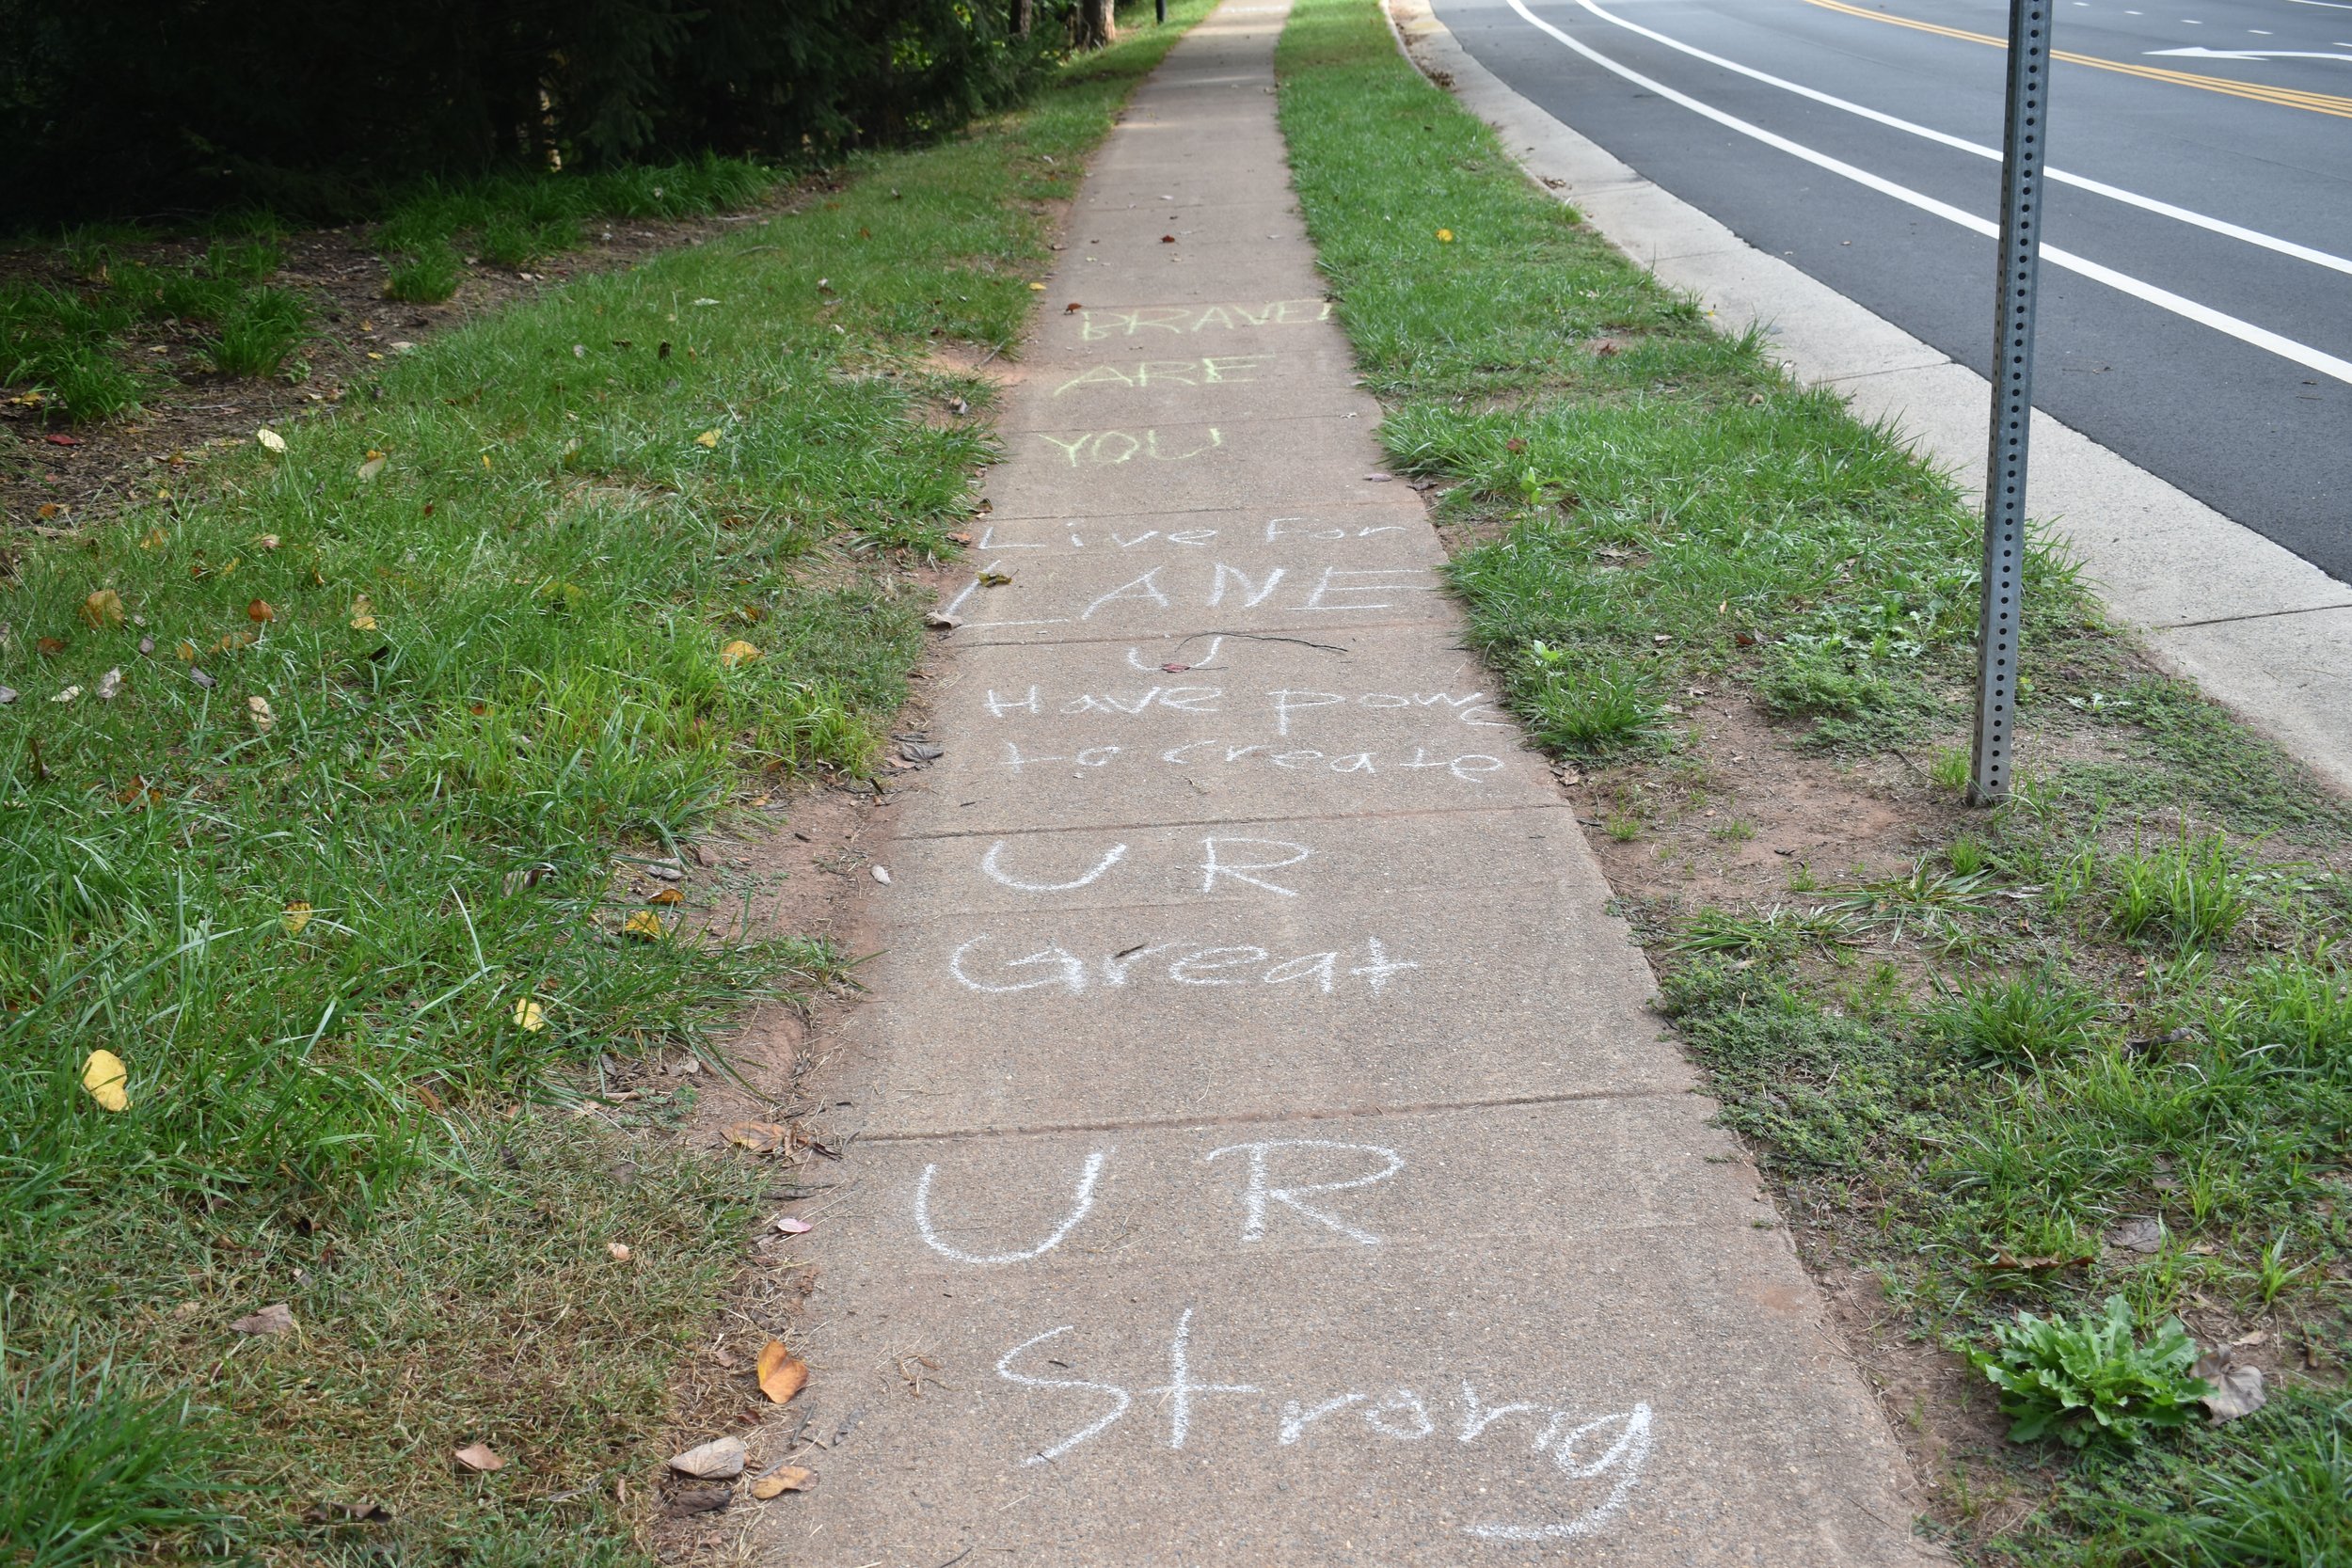 BRAVE
ARE
YOU
Live For
LANE
U
Have powe
to create
U R
Great
U R
Strong